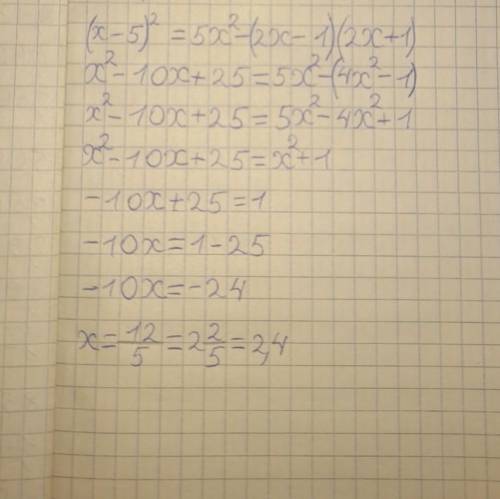 (x-5)² = 5x²-(2x-1)(2x+1)
x²-10x+25=5x²-(4x²-1)
x²-10x+25=5x²-4x²+1
x²-10x+25=x²+1
-10x+25=1
-10x=1-25
-10x=-24
x=12/5=2 2/5=2,4